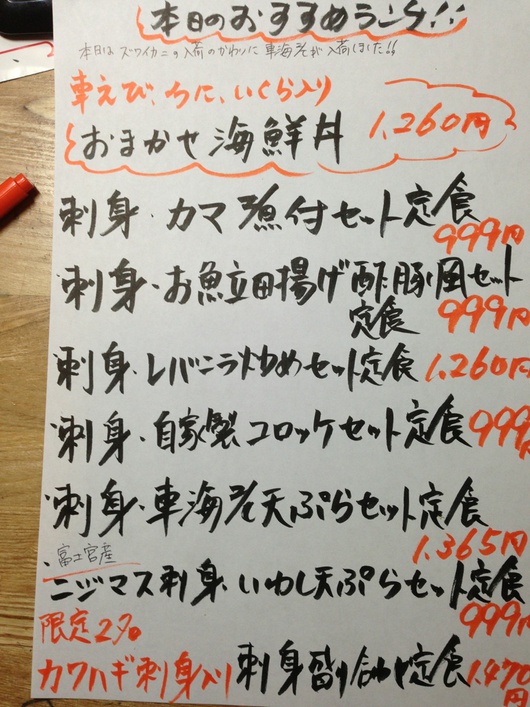 本日のおすすめランチ!!
本日はズワイカニの入荷のかわりに車海老が入荷しました!!
車えび、うに、いくら入り
おまかせ海鮮丼 1,260円
刺身・カマ煮付セット定食
999円
刺身・お魚立田揚げ酢豚風セット
定食 999円
刺身・レバニラ炒めセット定食 1,260円
刺身・自家製コロッケセット定食 999円
刺身・車海老天ぷらセット定食
1,365円
富士宮産
ニジマス刺身・いわし天ぷらセット定食
999円
限定2名
カワハギ刺身入り刺身盛り合わせ定食 1,470円